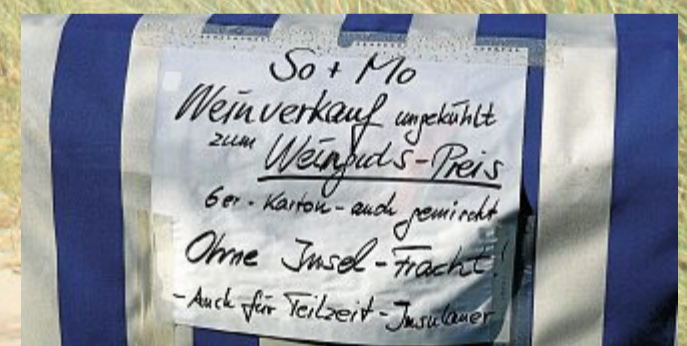 So + Mo
Weinverkauf ungekühlt
zum Weinguts-Preis
6er-Karton-auch gemischt
Ohne Insel-Fracht!
-Auch für Teilzeit-Insulaner